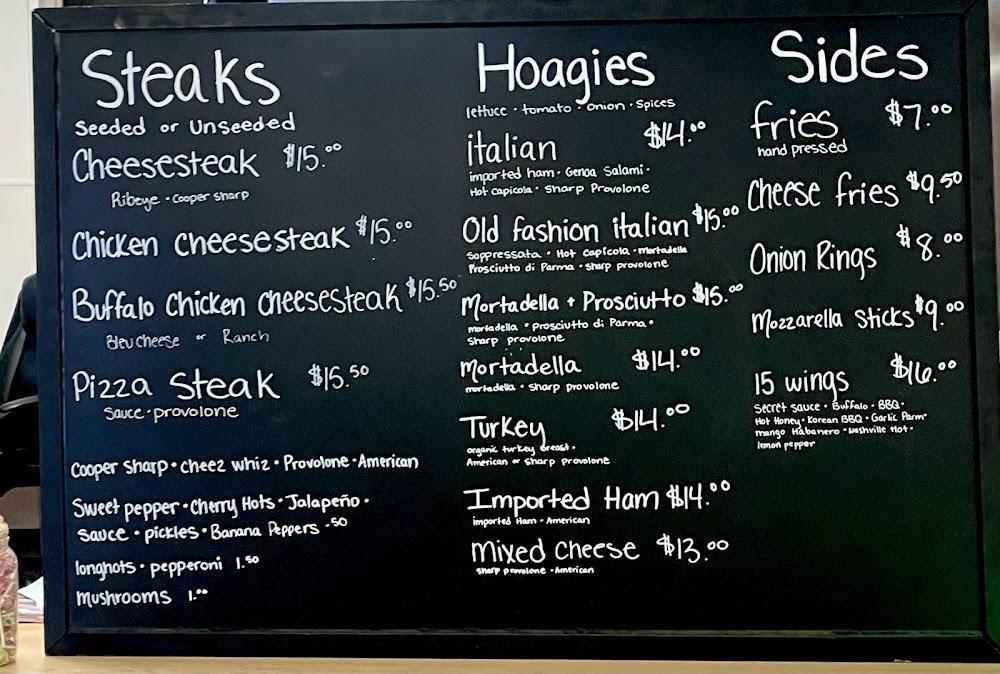 Steaks
Seeded or Unseeded
Cheesesteak $15.00
Ribeye • Cooper Sharp
Chicken Cheesesteak $15.00
Buffalo Chicken Cheesesteak $15.50
Bleu Cheese or Ranch
Pizza Steak $15.50
Sauce • provolone
Cooper Sharp • Cheez Whiz • Provolone • American
Sweet pepper • Cherry Hots • Jalapeño •
Sauce • pickles • Banana Peppers .50
longhots • pepperoni 1.50
Mushrooms 1.00
Hoagies
lettuce • tomato • Onion • Spices
italian $14.00
imported ham • Genoa Salami •
Hot Capicola • Sharp Provolone
Old fashion italian $15.00
Soppressata • Hot Capicola • Mortadella
Prosciutto di Parma • Sharp provolone
Mortadella + Prosciutto $15.00
mortadella • Prosciutto di Parma •
Sharp provolone
Mortadella $14.00
mortadella • Sharp provolone
Turkey $14.00
organic turkey breast •
American or Sharp provolone
Imported Ham $14.00
imported Ham • American
Mixed Cheese $13.00
Sharp provolone • American
Sides
fries $7.00
hand pressed
Cheese fries $9.50
Onion Rings $8.00
Mozzarella Sticks $9.00
15 wings $16.00
Secret sauce • Buffalo • BBQ •
Hot Honey • Korean BBQ • Garlic Parm •
mango Habanero • Nashville Hot •
lemon pepper